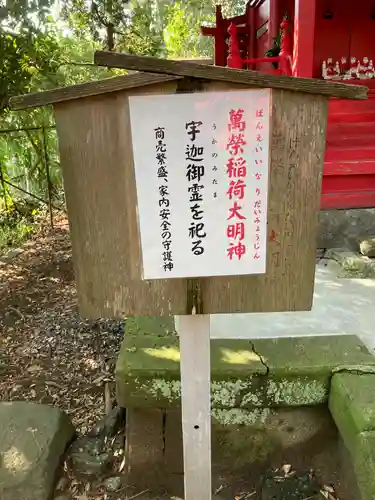 萬榮稲荷大明神
ばんえいいなりだいみょうじん
宇迦御霊を祀る
うかのみたま
商売繁盛、家内安全の守護神